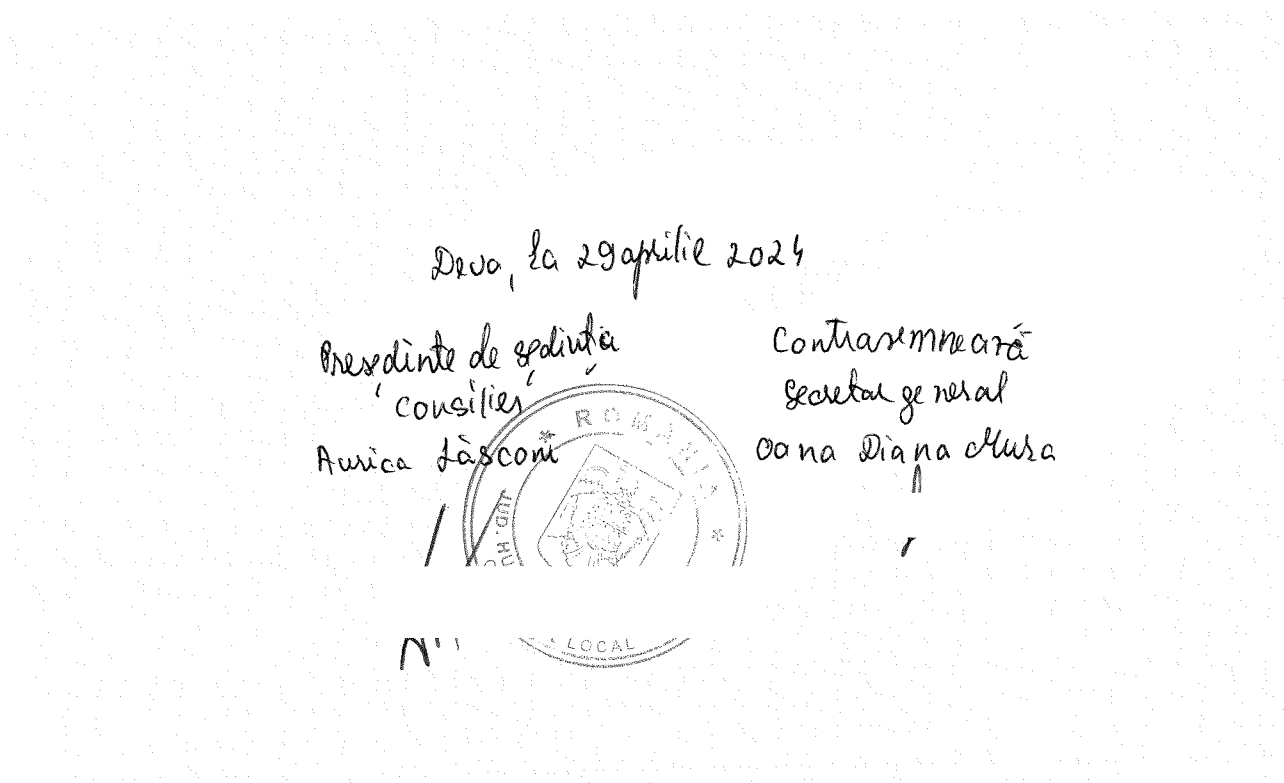 Deva, la 29 aprilie 2024
Președinte de ședință
consilier
Aurica Lăsconi
Contrasemnează
Secretar general
Oana Diana Mura
* ROMÂNIA *
JUD. HU
LOCAL